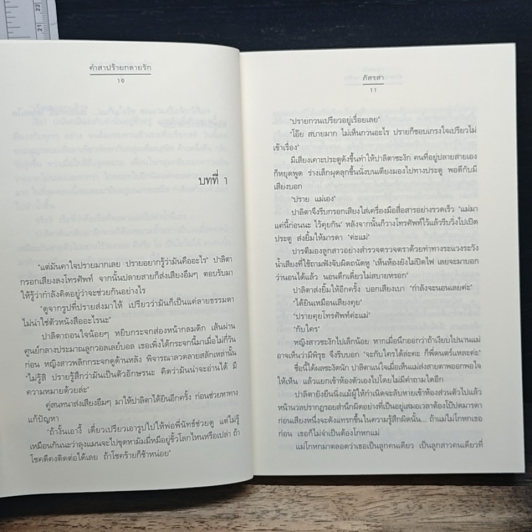 คำสาปร้ายกลายรัก
10
บทที่ 1
"แต่มันคาใจปรายมากเลย ปรายอยากรู้ว่ามันคืออะไร" ปาลิตา
กรอกเสียงลงโทรศัพท์ จากนั้นปลายสายก็ส่งเสียงอืมๆ ตอบรับมา
ให้รู้ว่ากำลังคิดอยู่ว่าจะช่วยกันอย่างไร
"ดูจากรูปที่ปรายส่งมาให้ เปรียวว่ามันก็เป็นแค่ลายธรรมดา
ไม่น่าใช่ตัวหนังสืออะไรนะ"
ปาลิตาถอนใจน้อยๆ หยิบกระจกส่องหน้ากลมดิก เส้นผ่าน
ศูนย์กลางประมาณลูกวอลเลย์บอล เธอเพิ่งได้กระจกนี้มาเมื่อไม่กี่วัน
ก่อน หญิงสาวพลิกกระจกดูด้านหลัง พิจารณาลวดลายสลักเหล่านั้น
"ไม่รู้สิ ปรายรู้สึกว่ามันเป็นตัวอักษรนะ คิดว่ามันน่าจะอ่านได้ มี
ความหมายด้วยล่ะ"
คู่สนทนาส่งเสียงอืมๆ มาให้ปาลิตาได้ยินอีกครั้ง ก่อนช่วยหาทาง
แก้ปัญหา
"ถ้างั้นเอางี้ เดี๋ยวเปรียวเอารูปไปให้พ่อพี่นัทธ์ช่วยดู แต่ไม่รู้
เหมือนกันนะว่าลุงแมนจะไปขุดหามัมมี่มีหมอยู่ขั้วโลกไหนหรือเปล่า ถ้า
โชคดีคงติดต่อได้เลย ถ้าโชคร้ายก็ช้าหน่อย"
ภัสรสา
11
"ปรายกวนเปรียวอยู่เรื่อยเลย"
"โอ๊ย สบายมาก ไม่เห็นกวนอะไร ปรายก็ชอบเกรงใจเปรียวไม่
เข้าเรื่อง"
มีเสียงเคาะประตูดังขึ้นทำให้ปาลิตาชะงัก คนที่อยู่ปลายสายเอง
ก็หยุดพูด ร่างเล็กผุดลุกขึ้นนั่งบนเตียงมองไปทางประตู พอดีกับมี
เสียงบอก
"ปราย แม่เอง"
ปาลิตาจึงรีบกรอกเสียงใส่เครื่องมือสื่อสารอย่างรวดเร็ว "แม่มา
แค่นี้ก่อนนะ ไว้คุยกัน" หลังจากนั้นก็วางโทรศัพท์ไว้แล้วรีบวิ่งไปเปิด
ประตู ส่งยิ้มให้มารดา "ค่ะแม่"
มารดีมองลูกสาวอย่างสำรวจตรวจตราด้วยท่าทางระแวงระวัง
น้ำเสียงที่ใช้ถามฟังจับผิดถนัดหู "เห็นห้องยังไม่ปิดไฟ เลยจะมาบอก
ว่านอนได้แล้ว นอนดึกเดี๋ยวไม่สบายหรอก"
ปาลิตาส่งยิ้มให้อีกครั้ง บอกเสียงเบา "กำลังจะนอนเลยค่ะ"
"ได้ยินเหมือนเสียงคุย"
"ปรายคุยโทรศัพท์ค่ะแม่"
"กับใคร"
หญิงสาวชะงักไปเล็กน้อย หากเมื่อนึกออกว่าถ้าเงียบไปนานแม่
อาจเห็นว่ามีพิรุธ จึงรีบบอก "จะกับใครได้ล่ะคะ ก็พี่ตนตร์แหละค่ะ"
ชื่อนี้ได้ผลชะงัดนัก ปาลิตาแน่ใจเมื่อเห็นแม่ส่งสายตาพออกพอใจ
ให้เห็น แล้วแยกเข้าห้องตัวเองไปโดยไม่มีคำถามใดอีก
ปาลิตายังยืนนิ่งแม้ผู้ให้กำเนิดจะลับหายเข้าห้องส่วนตัวไปแล้ว
หน้านวลปรากฏรอยสำนึกผิดอย่างที่เป็นอยู่เสมอเวลาต้องโป้ปดมารดา
ก่อนเสียงหนึ่งจะดังแทรกขึ้นในความรู้สึกผิดนั้น... ถ้าแม่ไม่โกหกเธอ
ก่อน เธอก็ไม่จำเป็นต้องโกหกแม่
แม่โกหกมาตลอดว่าเธอเป็นลูกคนเดียว เป็นลูกสาวคนเดียวที่